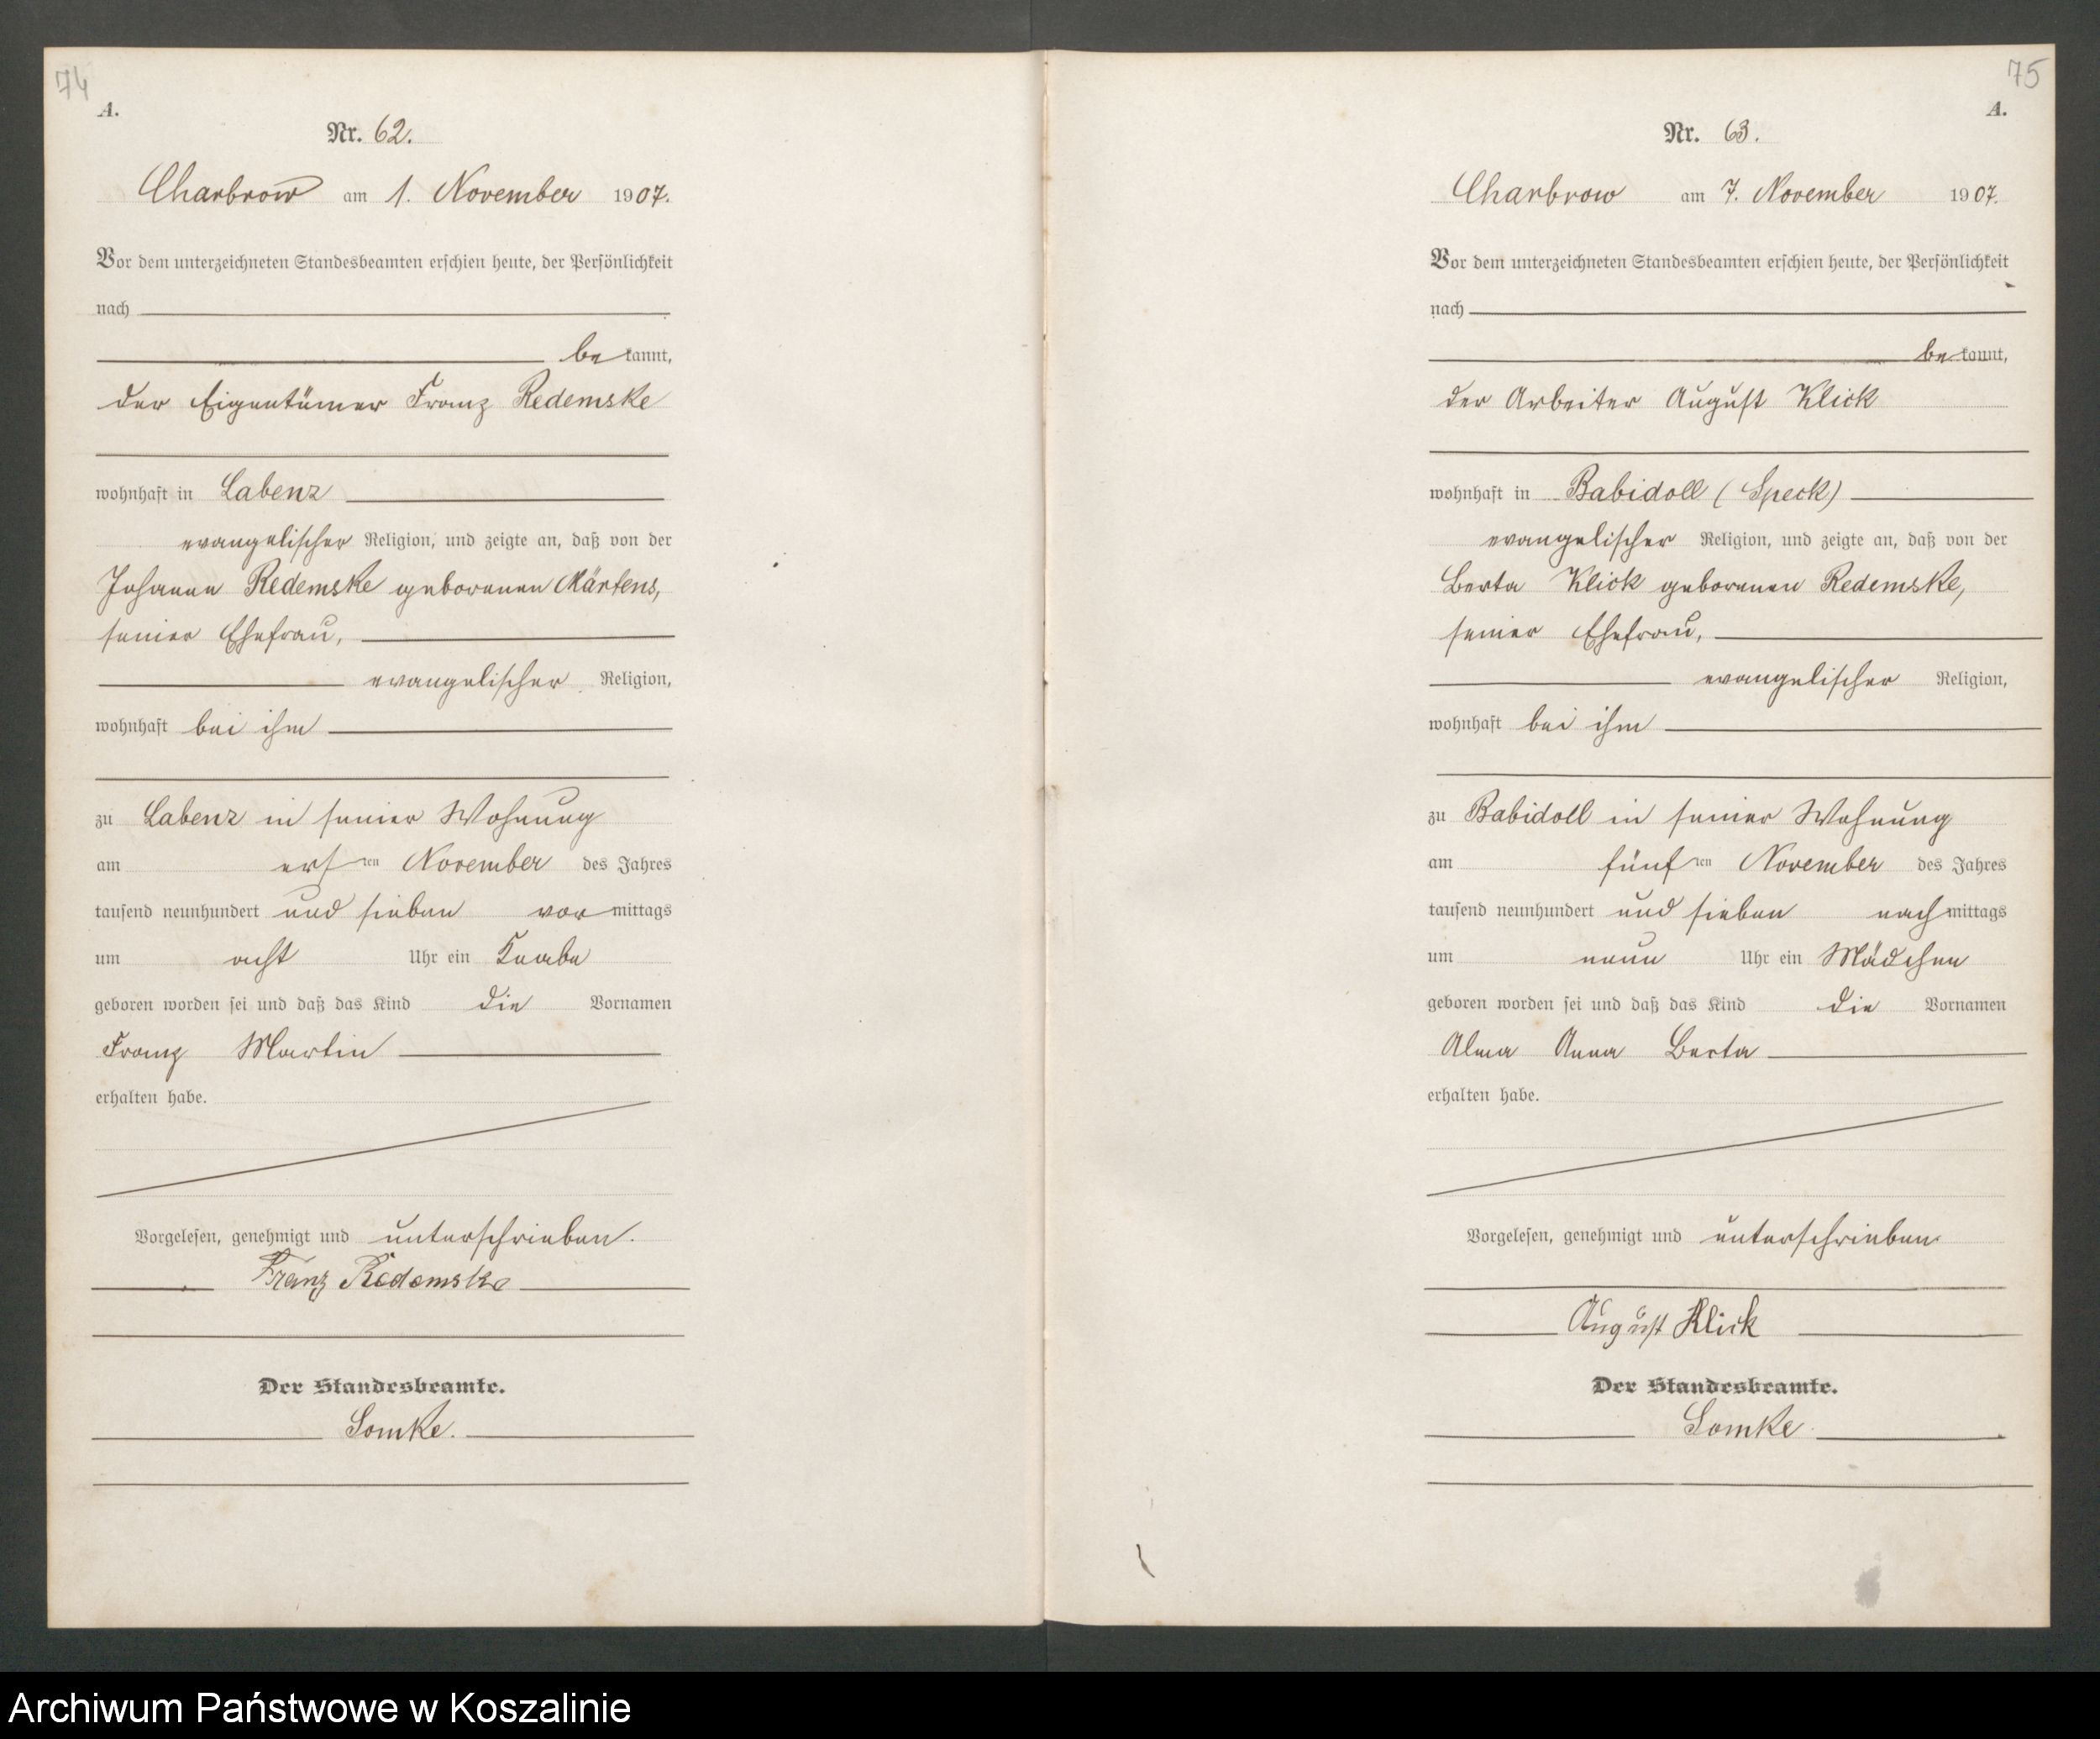 74
A.
Nr. 62.
Charbrow am 1. November 1907.
Vor dem unterzeichneten Standesbeamten erschien heute, der Persönlichkeit
nach
bekannt,
der Eigentümer Franz Redemske
wohnhaft in Labenz
evangelischer Religion, und zeigte an, daß von der
Johanne Redemske geborenen Märtens,
seiner Ehefrau,
evangelischer Religion,
wohnhaft bei ihm
zu Labenz in seiner Wohnung
am ersten November des Jahres
tausend neunhundert und sieben vormittags
um acht Uhr ein Knabe
geboren worden sei und daß das Kind die Vornamen
Franz Martin
erhalten habe.
Vorgelesen, genehmigt und unterschrieben.
Franz Redemske
Der Standesbeamte.
Lomke.
75
A.
Nr. 63.
Charbrow am 7. November 1907.
Vor dem unterzeichneten Standesbeamten erschien heute, der Persönlichkeit
nach
bekannt,
der Arbeiter August Klick
wohnhaft in Babidoll (Speck)
evangelischer Religion, und zeigte an, daß von der
Berta Klick geborenen Redemske,
seiner Ehefrau,
evangelischer Religion,
wohnhaft bei ihm
zu Babidoll in seiner Wohnung
am fünften November des Jahres
tausend neunhundert und sieben nachmittags
um neun Uhr ein Mädchen
geboren worden sei und daß das Kind die Vornamen
Alma Anna Berta
erhalten habe.
Vorgelesen, genehmigt und unterschrieben
August Klick
Der Standesbeamte.
Lomke
Archiwum Państwowe w Koszalinie